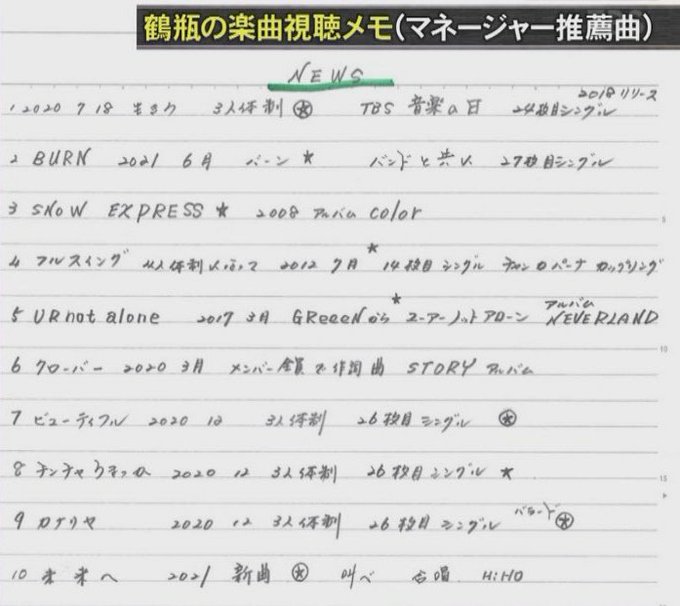 鶴瓶の楽曲視聴メモ(マネージャー推薦曲)
NEWS
2018リリース
1 2020 7 18 生きろ 3人体制 ✪ TBS 音楽の日 24枚目シングル
2 BURN 2021 6月 バーン ★ バンドと共に 27枚目シングル
3 SNOW EXPRESS ★ 2008 アルバム color
4 フルスイング 4人体制になって 2012 7月 ★ 14枚目シングル チャンカパーナ カップリング
アルバム
5 URnot alone 2017 3月 GReeeNから ★ ユーアーノットアローン NEVERLAND
6 クローバー 2020 3月 メンバー全員で作詞曲 STORY アルバム
7 ビューティフル 2020 12 3人体制 26枚目シングル ✪
8 チンチャうまっか 2020 12 3人体制 26枚目シングル ★
9 カナリヤ 2020 12 3人体制 26枚目シングル バラード ✪
10 未来へ 2021 新曲 ✪ 叫べ 合唱 HiHO